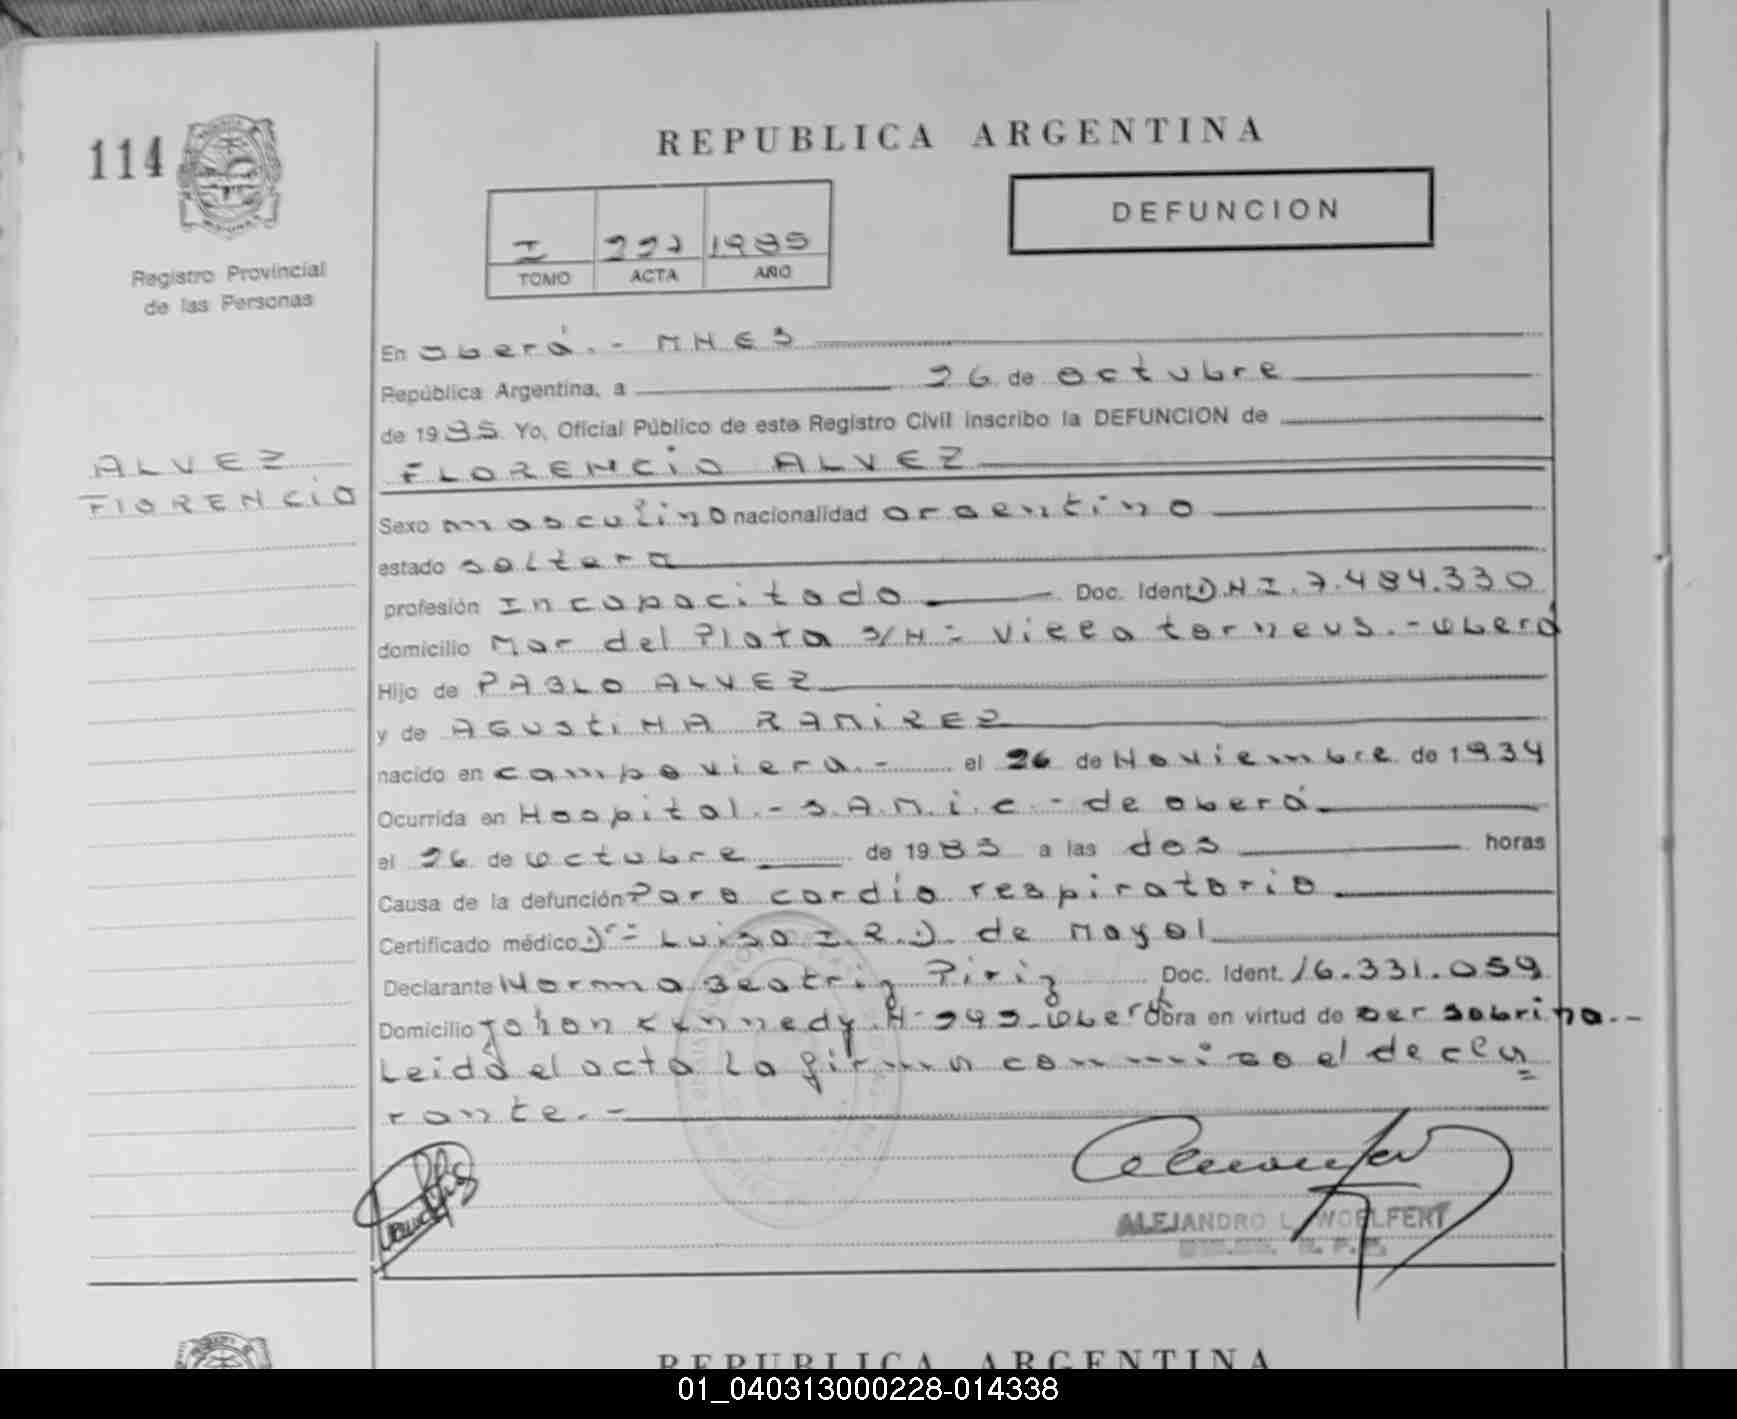 114
REPUBLICA ARGENTINA
DEFUNCION
I 227 1985
TOMO ACTA AÑO
Registro Provincial
de las Personas
ALVEZ
FLORENCIO
En oberá.- MNES
República Argentina, a 26 de octubre
de 1985 Yo, Oficial Público de este Registro Civil inscribo la DEFUNCION de
FLORENCIO ALVEZ
Sexo masculino nacionalidad argentino
estado soltero
profesión Incapacitado Doc. Ident. D.N.I. 7.484.330
domicilio Mar del Plata S/N - Villa torneus.- oberá
Hijo de PABLO ALVEZ
y de AGUSTINA RAMIREZ
nacido en campo viera.- el 26 de Noviembre de 1934
Ocurrida en Hospital.- S.A.M.i.c - de oberá
el 26 de octubre de 1985 a las dos horas
Causa de la defunción Paro cardio respiratorio
Certificado médico Dr= Luisa I.R.D. de Mayol
Declarante Norma Beatriz Piriz Doc. Ident. 16.331.059
Domicilio Johon Kennedy N- oberá Obra en virtud de ser sobrina.-
Leida el acta la firma conmigo el decla
rante.-
ALEJANDRO L. WOELFERT
REPUBLICA ARGENTINA
01_040313000228-014338